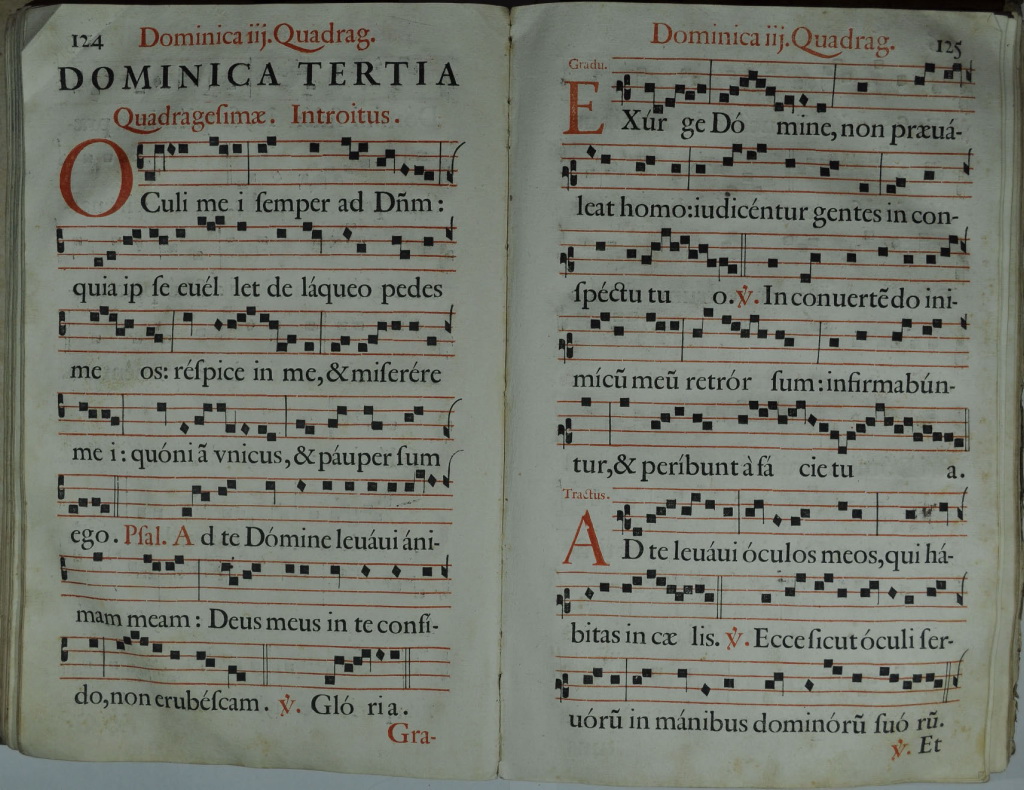 124 Dominica iij. Quadrag.
DOMINICA TERTIA
Quadrageſimæ. Introitus.
OCuli me i ſemper ad Dñm:
quia ip ſe euél let de láqueo pedes
me os: réſpice in me, & miſerére
me i: quóni ã vnicus, & páuper ſum
ego. Pſal. A d te Dómine leuáui áni-
mam meam: Deus meus in te confi-
do, non erubéſcam. ℣. Gló ria.
Gra-
Dominica iij. Quadrag. 125
Gradu.
EXúr ge Dó mine, non præuá-
leat homo: iudicéntur gentes in con-
ſpéctu tu o. ℣. In conuertẽdo ini-
mícũ meũ retrór ſum: infirmabún-
tur, & períbunt à fá cie tu a.
Tractus.
AD te leuáui óculos meos, qui há-
bitas in cæ lis. ℣. Ecce ſicut óculi ſer-
uórũ in mánibus dominórũ ſuó rũ.
℣. Et